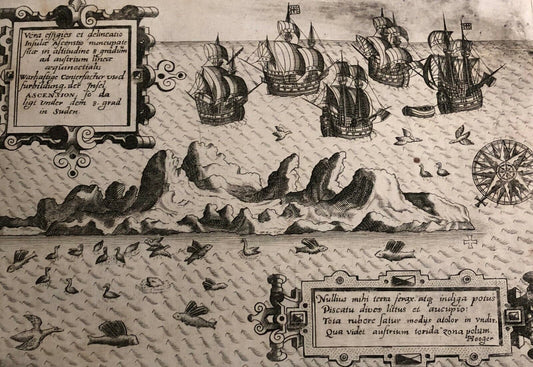 Vera effigies et delineatio
Insulæ Ascensio nuncupatæ
sitæ in altitudine 8 graduum
ad austrum lineæ
æquinoctialis
Warhaftige Conterfactur vnd
furbildung, der Insel
ASCENSION, so da
ligt vnder dem 8. grad
in Suden.
Nullius mihi terra ferax atq; indiga potus
Piscatu dives littus et aucupio:
Tota rubore satur medijs atolor in vndis.
Qua videt austrum torida zona polum.